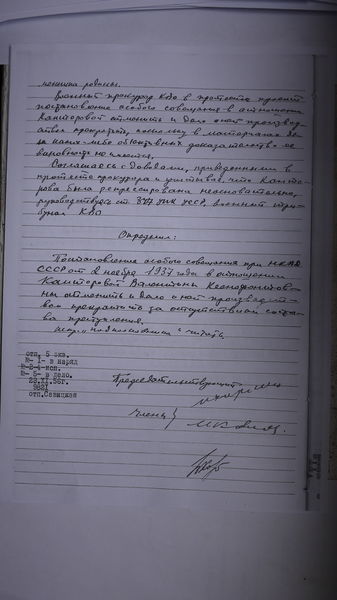 Военный прокурор КВО в протесте просит
постановление особого совещания в отношении
Канторовой отменить и дело о ней производ-
ством прекратить, поскольку в материалах де-
ла каких-либо объективных доказательств ее
виновности не имеется.
Соглашаясь с доводами, приведенными в
протесте прокурора и учитывая, что Канто-
рова была репрессирована неосновательно,
руководствуясь ст. УПК УССР, военный три-
бунал КВО
Определил:
Постановление особого совещания при НКВД
СССР от 2 ноября 1937 года в отношении
Канторовой Валентины Ксенофонтов-
ны отменить и дело о ней производст-
вом прекратить за отсутствием соста-
ва преступления.
отп. 5 экз.
№-1- в наряд
2-4-исп.
№-5- в дело.
23.XI.56г.
9821
отп.Савицкая
Председательствующий
Члены